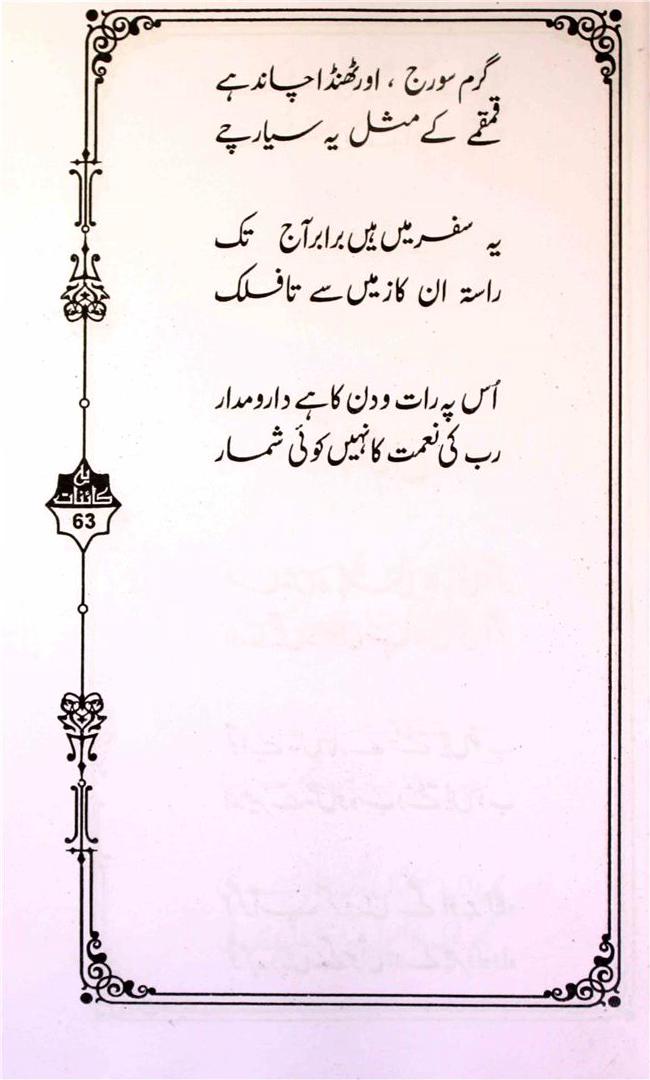 گرم سورج ، اور ٹھنڈا چاند ہے
قمقمے کے مثل یہ سیارچے
یہ سفر میں ہیں برابر آج تک
راستہ ان کا زمیں سے تا فلک
اُس پہ رات و دن کا ہے دارومدار
رب کی نعمت کا نہیں کوئی شمار
یہ
کائنات
63